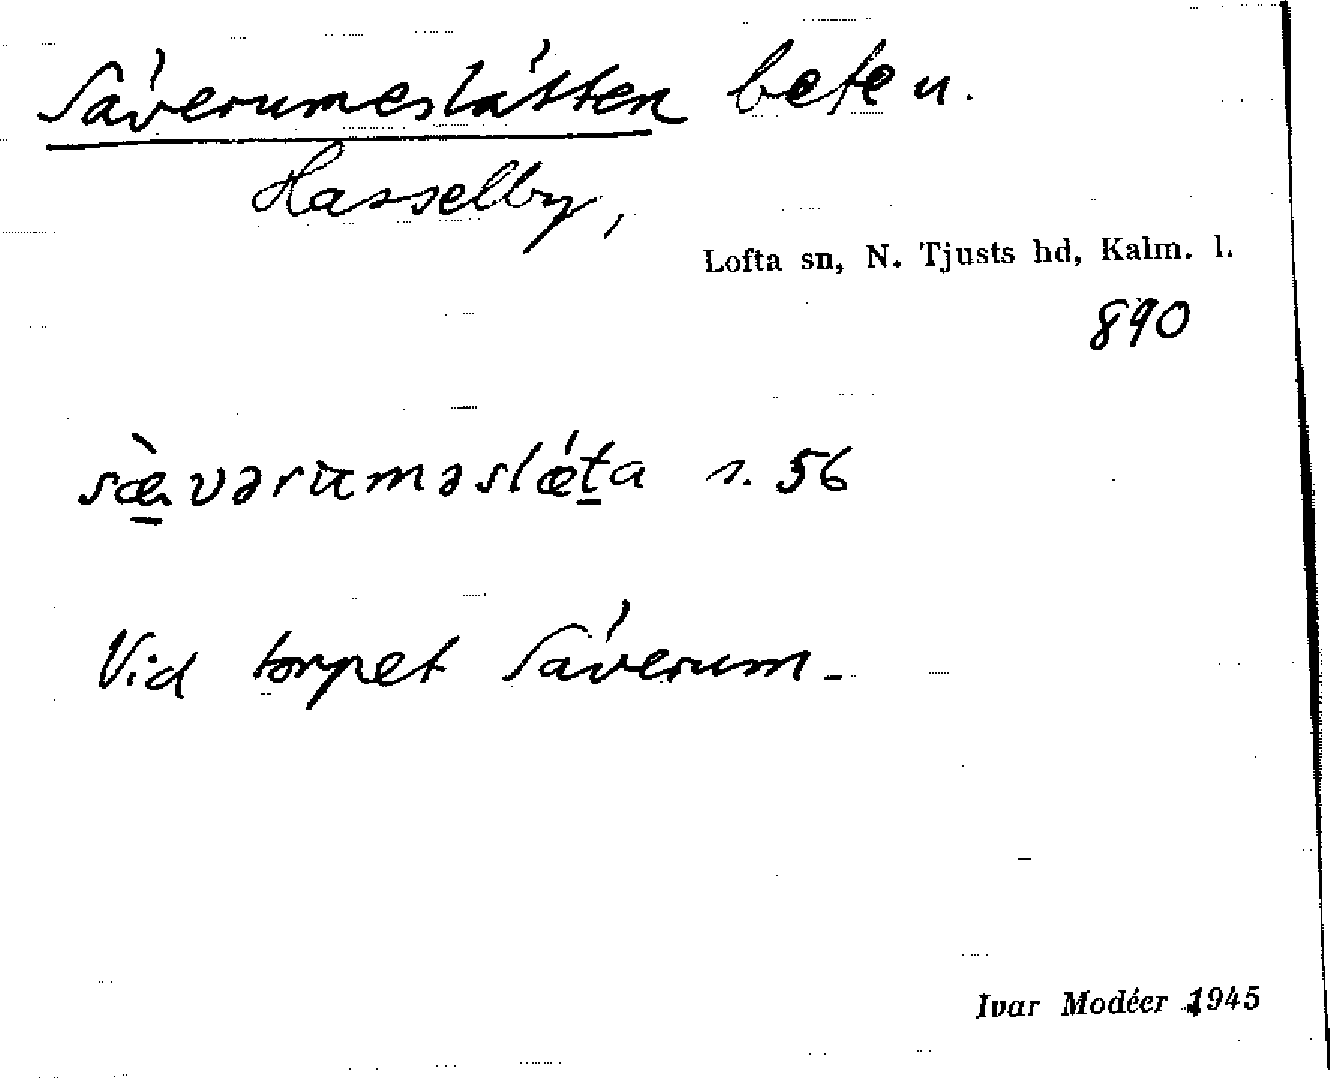 Säverumeslätten beten.
Hasselby,
Lofta sn, N. Tjusts hd, Kalm. l.
890
sæ̀vəruməslǽta s. 56
Vid torpet Säverum.
Ivar Modéer 1945